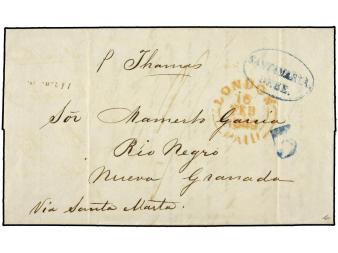 P Thomas
SANTAMARTA
DEBE.
LONDON
16
FEB
PAID
Sōr Mamerto Garcia
Rio Negro
Nueva Granada
Via Santa Marta.